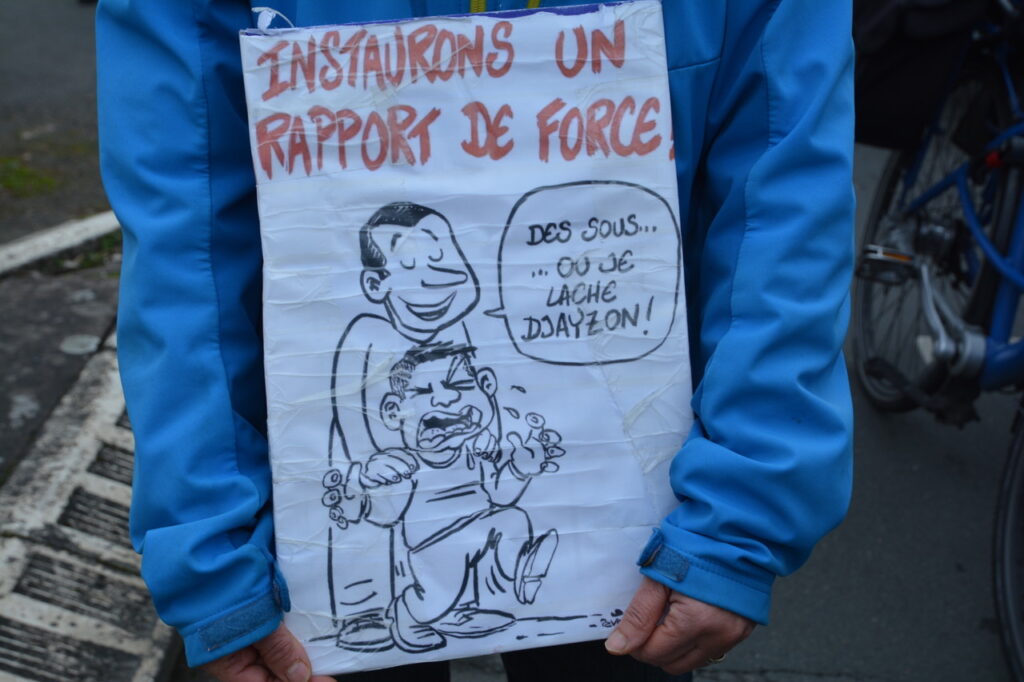 INSTAURONS UN
RAPPORT DE FORCE!
DES SOUS...
... OU JE
LACHE
DJAYZON!